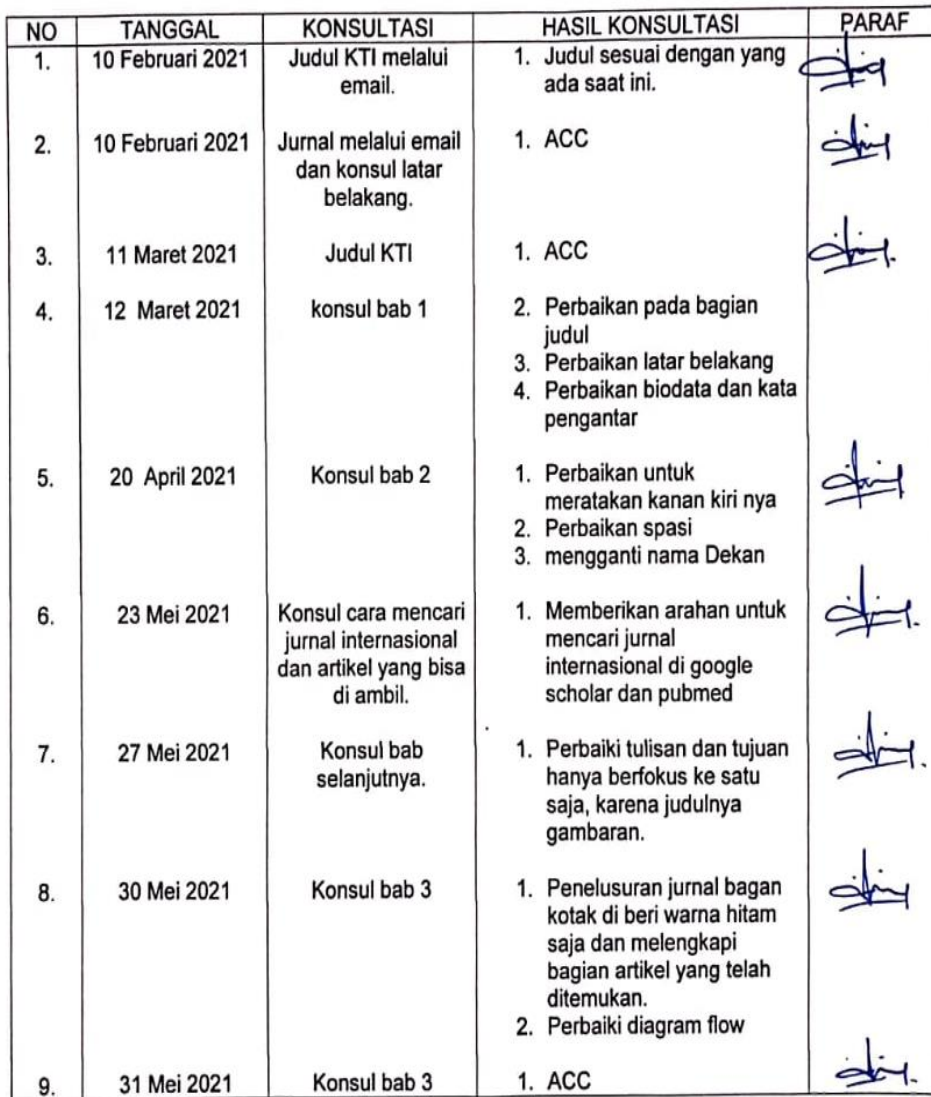 NO TANGGAL KONSULTASI HASIL KONSULTASI PARAF
1. 10 Februari 2021 Judul KTI melalui 1. Judul sesuai dengan yang
email. ada saat ini.
2. 10 Februari 2021 Jurnal melalui email 1. ACC
dan konsul latar
belakang.
3. 11 Maret 2021 Judul KTI 1. ACC
4. 12 Maret 2021 konsul bab 1 2. Perbaikan pada bagian
judul
3. Perbaikan latar belakang
4. Perbaikan biodata dan kata
pengantar
5. 20 April 2021 Konsul bab 2 1. Perbaikan untuk
meratakan kanan kiri nya
2. Perbaikan spasi
3. mengganti nama Dekan
6. 23 Mei 2021 Konsul cara mencari 1. Memberikan arahan untuk
jurnal internasional mencari jurnal
dan artikel yang bisa internasional di google
di ambil. scholar dan pubmed
7. 27 Mei 2021 Konsul bab 1. Perbaiki tulisan dan tujuan
selanjutnya. hanya berfokus ke satu
saja, karena judulnya
gambaran.
8. 30 Mei 2021 Konsul bab 3 1. Penelusuran jurnal bagan
kotak di beri warna hitam
saja dan melengkapi
bagian artikel yang telah
ditemukan.
2. Perbaiki diagram flow
9. 31 Mei 2021 Konsul bab 3 1. ACC